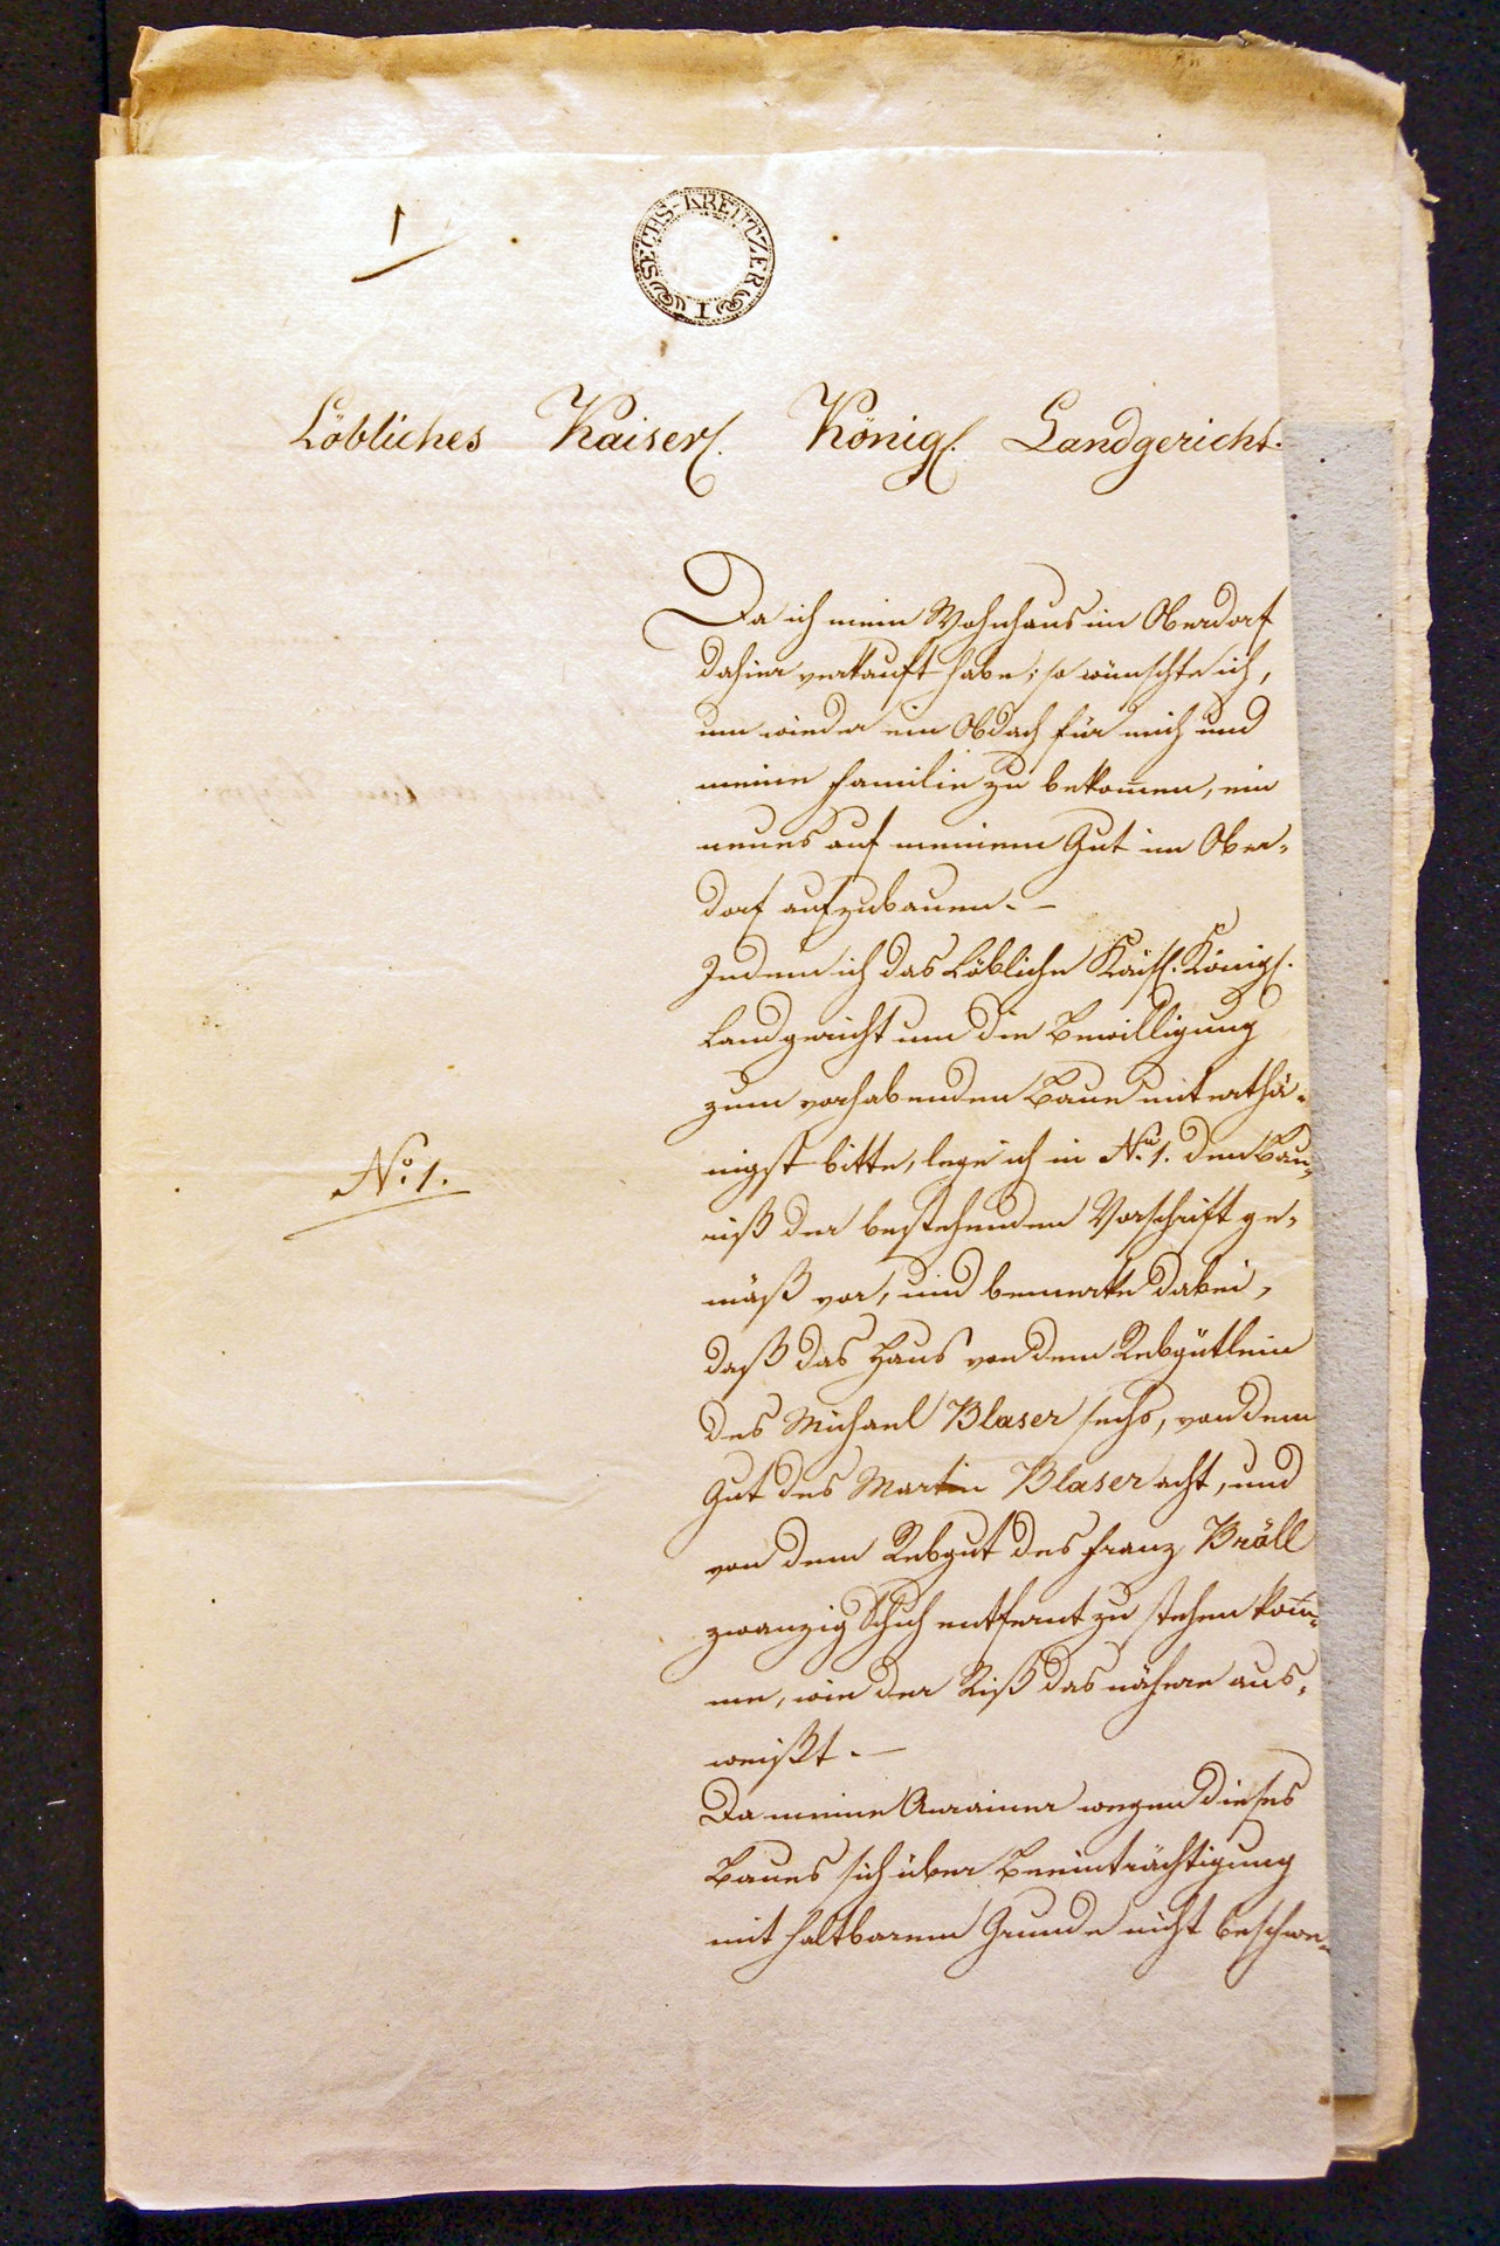 1
SECHS-KREUTZER
I
Löbliches Kaiserl. Königl. Landgericht.
Da ich mein Wohnhaus im Oberdorf
dahier verkauft habe; so wünschte ich,
um wieder ein Obdach für mich und
meine Familie zu bekom̅en, ein
neues auf meinem Gut im Ober-
dorf aufzubauen. –
Indem ich das Löbliche Kaisl. Königl.
Landgericht um die Bewilligung
zum vorhabenden Baue unterthä-
nigst bitte, lege ich in No. 1. den Bau-
No. 1.
riß der bestehenden Vorschrift ge-
mäß vor, und bemerke dabei,
daß das Haus von dem Rebgütlein
des Michael Blaser sechs, von dem
Gut des Martin Blaser acht, und
von dem Rebgut des Franz Bröll
zwanzig Schuh entfernt zu stehen kom̅-
me, wie der Riß das nähere aus-
weißt. –
Da meine Anrainer wegen dieses
Baues sich über Beeinträchtigung
mit haltbarem Grunde nicht beschwe-